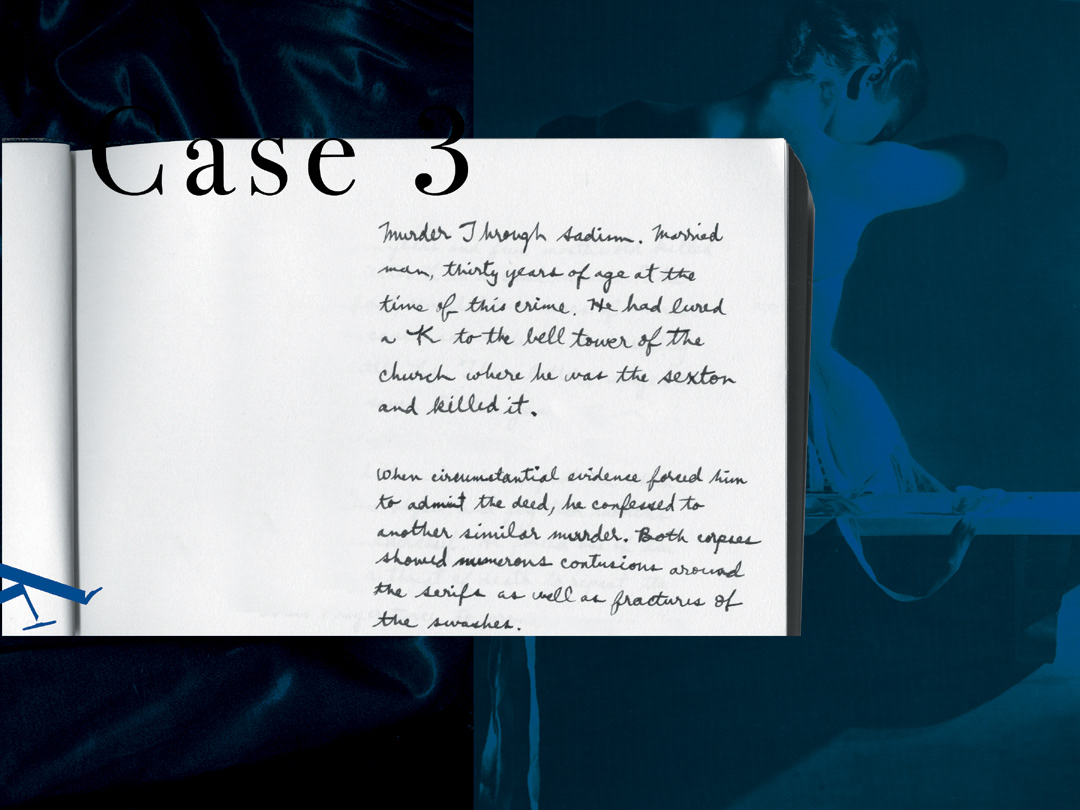 Case 3
Murder Through sadism. Married
man, thirty years of age at the
time of this crime. He had lured
a K to the bell tower of the
church where he was the sexton
and killed it.
When circumstantial evidence forced him
to admit the deed, he confessed to
another similar murder. Both corpses
showed numerous contusions around
the serifs as well as fractures of
the swashes.